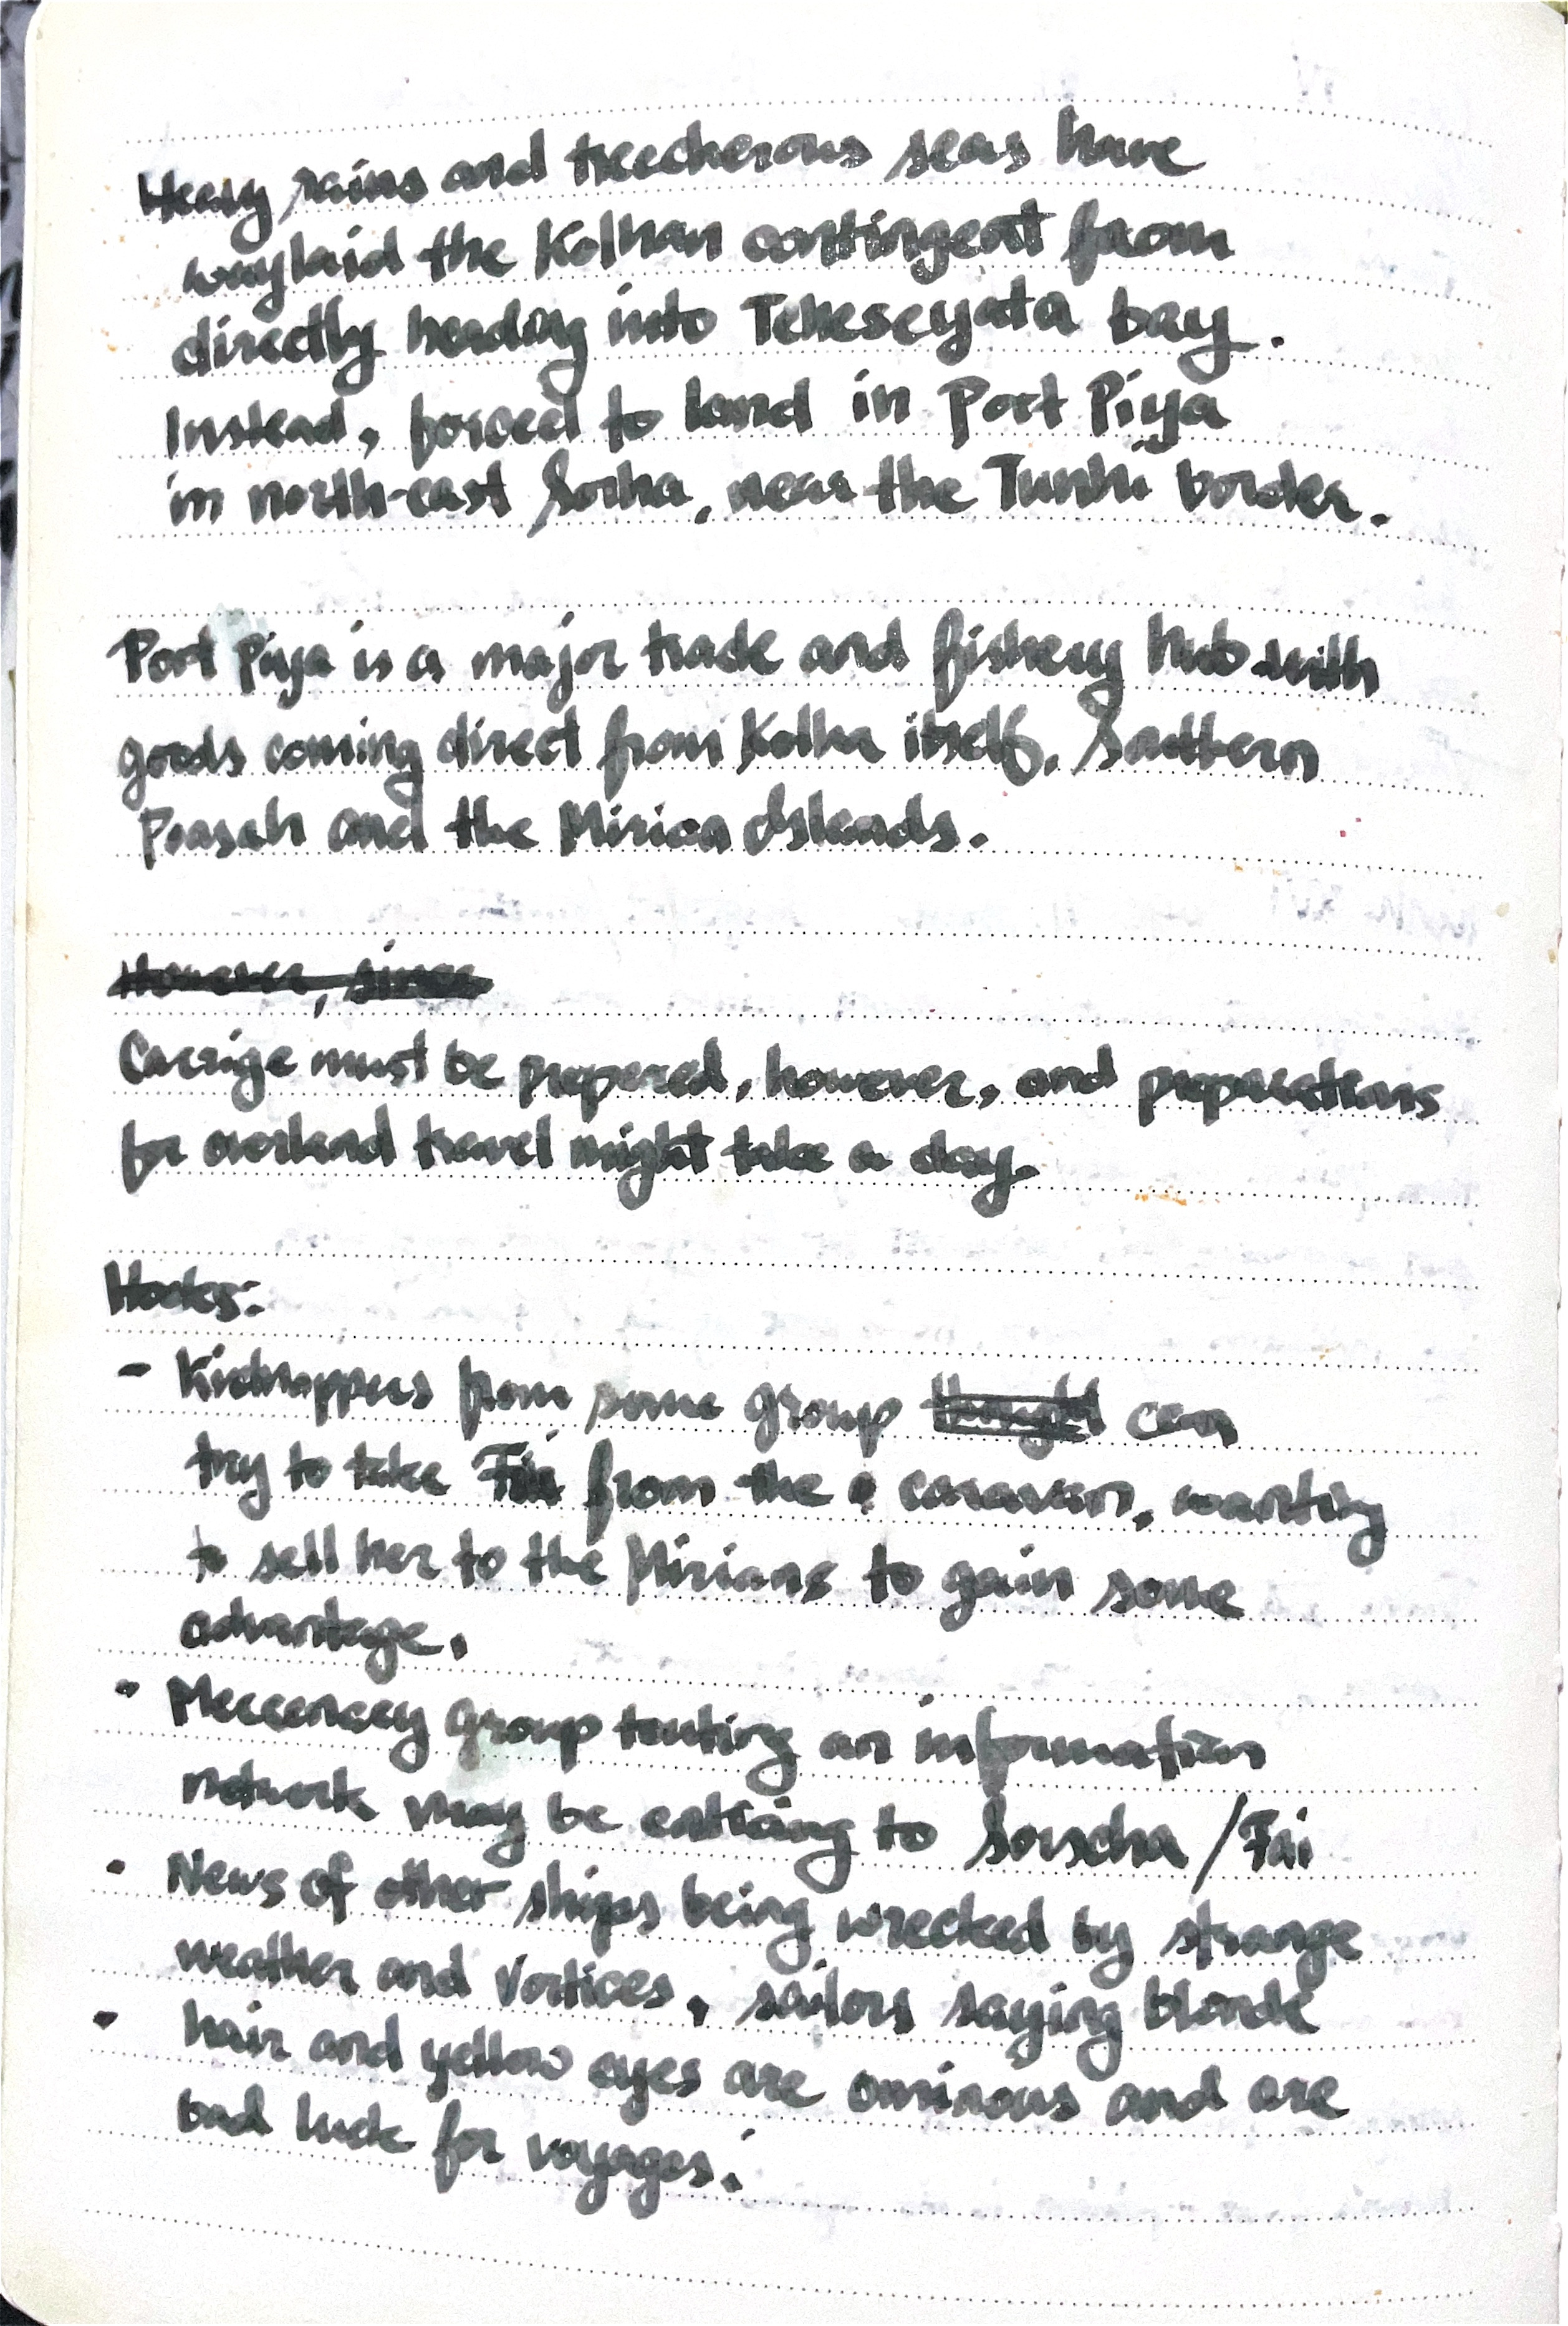 Heavy rains and treecherous seas have
waylaid the Kolhan contingent from
directly heading into Teheseyata bay.
Instead, forced to land in Port Piya
in north-east Sorha, near the Tunhi border.
Port Piya is a major trade and fishery hub with
goods coming direct from Kolha itself, Southern
Prasah and the Mirian Islands.
However, since
Carrige must be prepered, however, and preparations
for overland travel might take a day.
Hooks:
- Kidnappers from some group thought can
try to take Fai from the caravan, wanting
to sell her to the Mirians to gain some
advantage.
- Mercenary group touting an information
network may be enticing to Sorscha / Fai
- News of other ships being wrecked by strange
weather and vortices, sailors saying blonde
- hair and yellow eyes are ominous and are
bad luck for voyages.